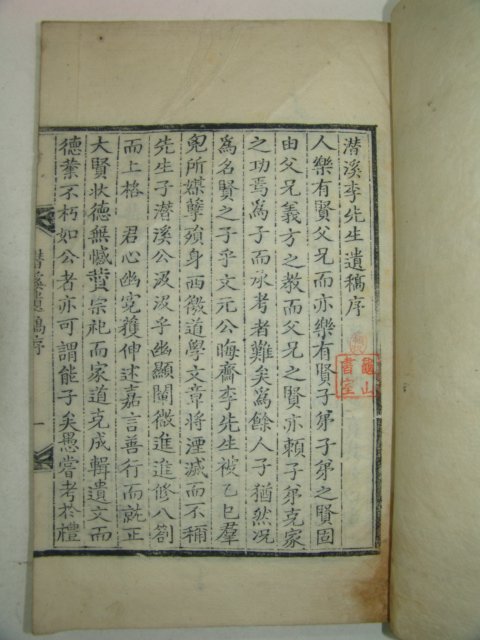 潛溪李先生遺稿序
人樂有賢父兄而亦樂有賢子弟子弟之賢固
由父兄義方之教而父兄之賢亦賴子弟克家
之功焉爲子而承考者難矣爲餘人子猶然况
爲名賢之子乎文元公晦齋李先生被乙巳羣
兇所媒孽殞身西徼道學文章將湮滅而不稱
先生子潜溪公汲汲乎幽顯闡微進進修八劄
而上格 君心幽寃獲伸述嘉言善行而就正
大賢狀德無憾䝴宗祀而家道克成輯遺文而
德業不朽如公者亦可謂能子矣愚嘗考於禮
潛溪遺稿序
一
龜山書室